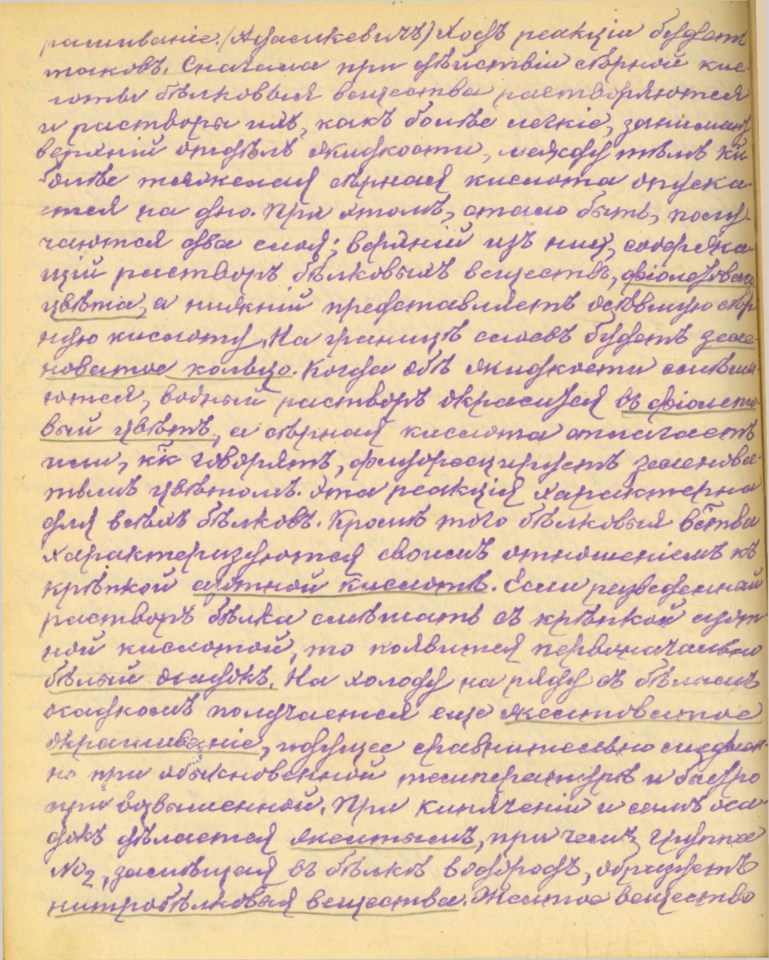 рашиванiе (Адамкевичъ) Ходъ реакцiи будетъ
таковъ. Сначала при дѣйствiи сѣрной кис
лоты бѣлковыя вещества растворяются
и растворы ихъ, какъ болѣе легкiе, занимаю
верхнiй отдѣлъ жидкости, между тѣмъ кк
болѣе тяжелая сѣрная кислота опуска-
ется на дно. При этомъ, стало быть, полу-
чаются два слоя; верхнiй изъ них, содержа-
щiй растворъ бѣлковыхъ веществъ, фiолетоваго
цвѣта, а нижнiй представляетъ осѣвшую сѣр
ную кислоту. На границѣ слоевъ будетъ зеле-
новатое кольцо. Когда обѣ жидкости смѣши-
ются, водный растворъ окрасится въ фiолето
вый цвѣтъ, а сѣрная кислота отливаетъ
или, кк говорятъ, флуоресцируетъ зеленова-
тымъ цвѣтомъ. Эта реакцiя характерна
для всѣхъ бѣлковъ. Кромѣ того бѣлковыя вства
характеризуются своимъ отношенiемъ къ
крѣпкой азотной кислотѣ. Если разведенный
растворъ бѣлка смѣшать съ крѣпкой азот
ной кислотой, то появится первоначально
бѣлый осадокъ. На холоду на ряду съ бѣлымъ
осадкомъ получается еще желтоватое
окрашиванiе, идущее сравнительно медлен-
но при обыкновенной температурѣ и быстро
при возвышенной. При кипяченiи и самъ оса
докъ дѣлается желтымъ, при чемъ группа
NO2, замѣщая въ бѣлкѣ водородъ, образуетъ
нитробѣлковая вещества. Желтое вещество